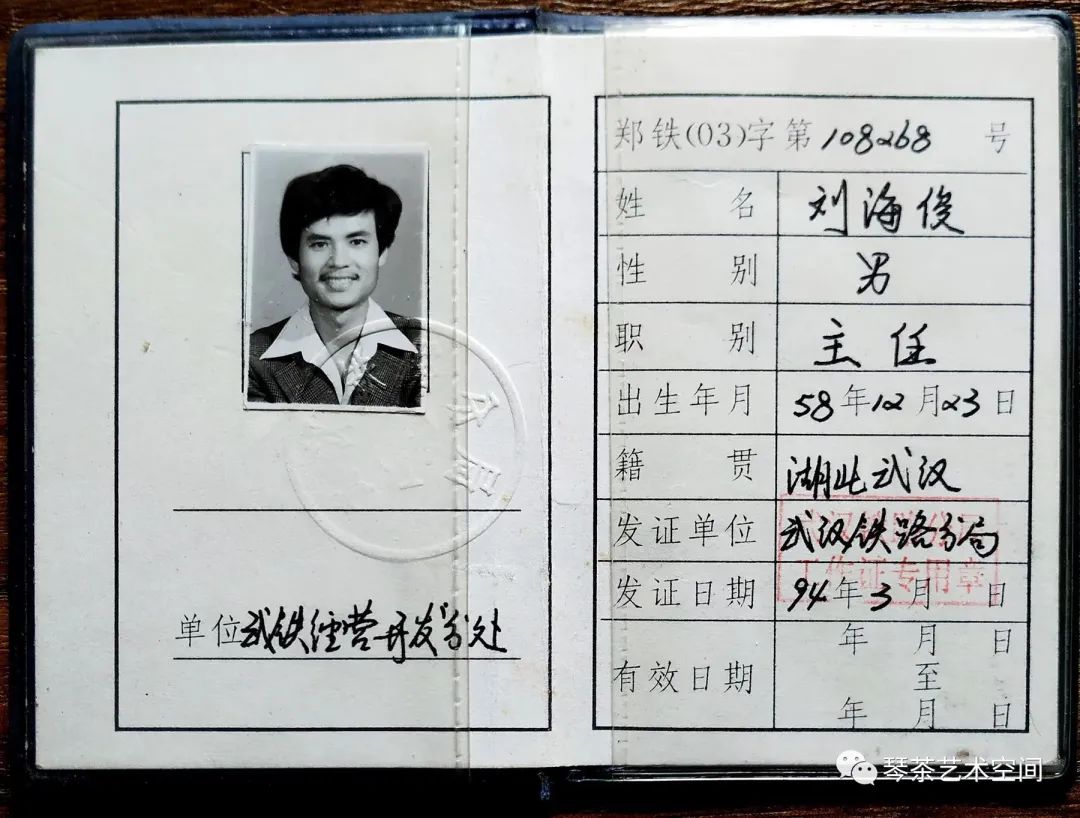 单位武铁经营开发分处
郑铁(03)字第108268号
姓名 刘海俊
性别 男
职别 主任
出生年月 58年12月23日
籍贯 湖北武汉
发证单位 武汉铁路分局
工作证专用章
发证日期 94年3月 日
有效日期 年 月 日
至
年 月 日
琴茶艺术空间